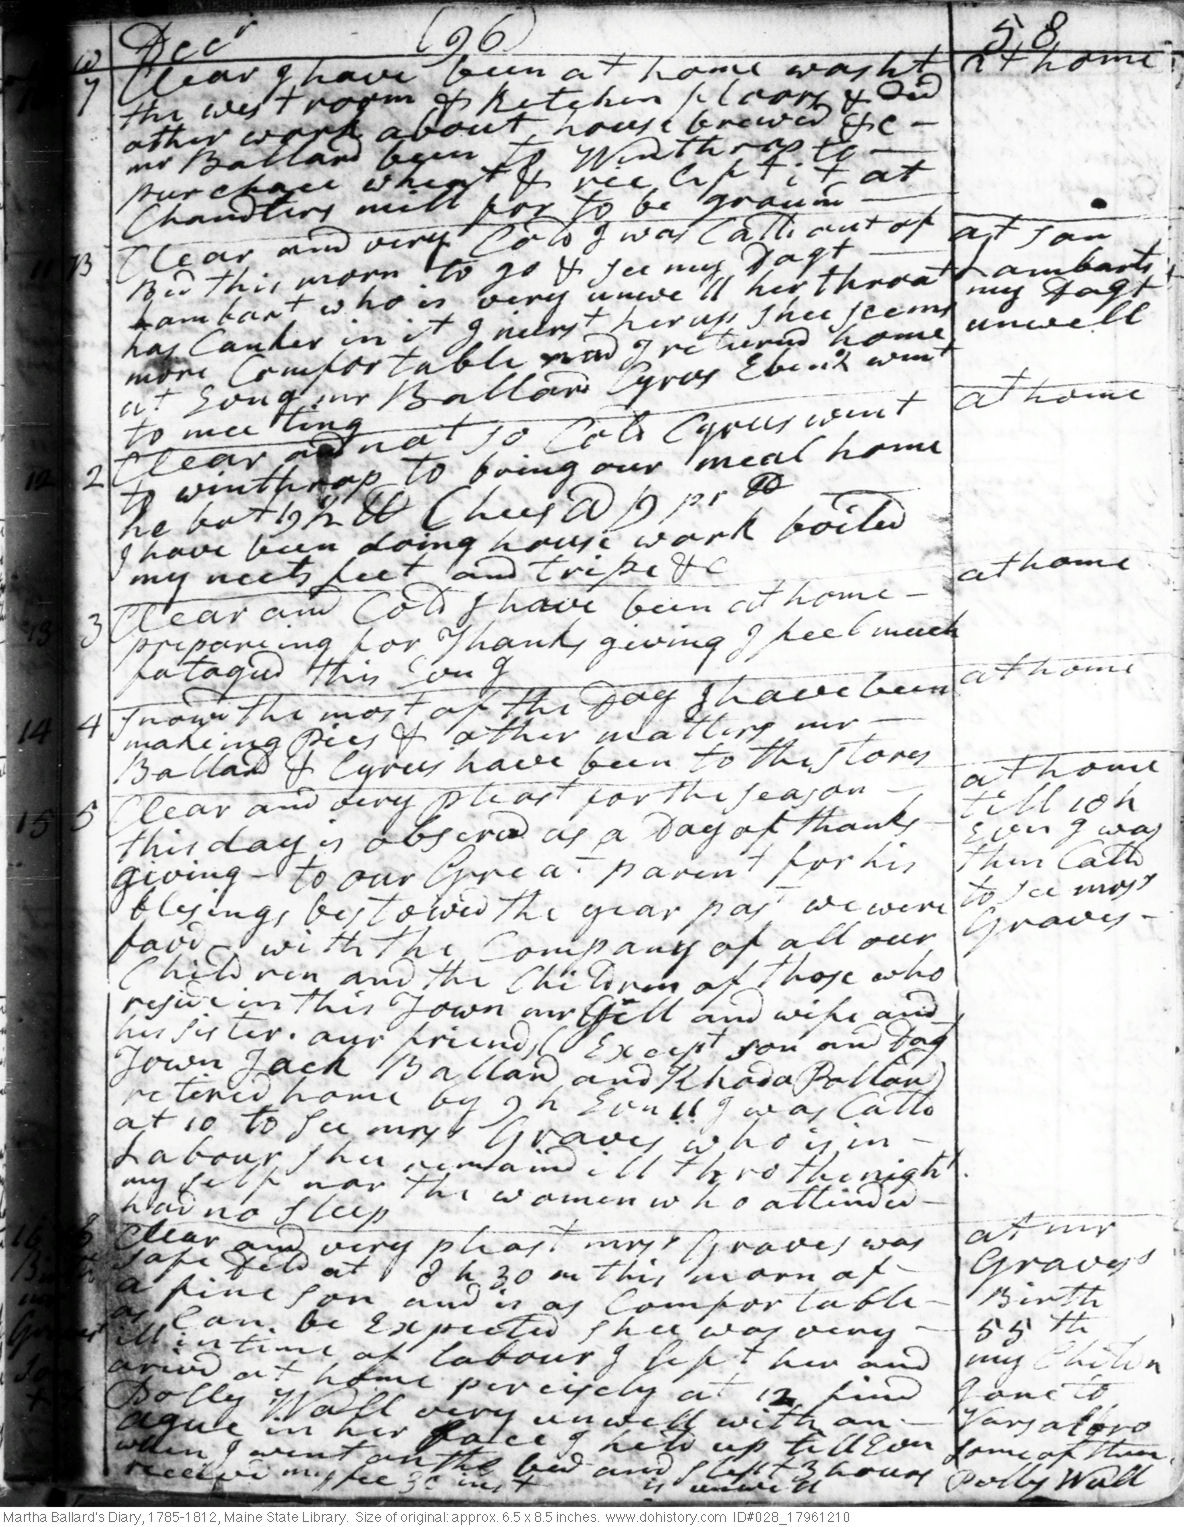 Decr (96) 58
7 Clear I have been at home washt at home
the west room & Ketchen floors & did
other work about house brewed &c -
mr Ballard been to Winthrop to
purchace wheat & rie left it at
Chandlers mill for to be groun
11 Clear and very Cold I was Calld out of at son
Bed this morn to go & see my Dagt Lambarts
Lambart who is very unwell her throat my Dagt
has Canker in it I nurst her up shee seems unwell
more Comfortable and I returnd home
at Evng mr Ballard Cyrus Ebenr went
to meeting
12 2 Clear and not so Cold Cyrus went at home
to winthrop to bring our meal home
he bot Chees @ pr
I have been doing house work boiled
my neets feet and tripe &c
13 3 Clear and Cold I have been at home - at home
prepareing for Thanksgiving I feel much
fatagud this Evng
14 4 Snowd the most of the Day I have been at home
makeing Pies & other matters mr -
Ballard & Cyrus have been to the stores
15 5 Clear and very pleast for the season - at home
this day is obserd as a Day of thanks till 10 h
giveing - to our Great parent for his Evn I was
blesings bestowed the year past we were then Calld
favd with the Company of all our to see mrss
Children and the Children of those who Graves -
reside in this Town mr Gill and wife and
his sister. our friends (Except son and Dag
Town Jack Ballard and Rhoda Pollard)
retired home by 9 h Evn I was Calld
at 10 to see mrss Graves who is in -
Labour shee remaind ill thro the night
my self nor the women who attinded -
had no sleep
16 Clear and very pleast mrss Graves was at mr
safe Deld at 8 h 30 m this morn of - Gravess
a fine son and is as Comfortable - Birth
as Can be Expected shee was very - 55 th
ill in time of labour I left her and my Childn
arivd at home percisely at 12 find gone to
Polly Wall very unwell with an - Varsalboro
ague in her face I held up till Evn some of them
when I went on the bed and slept 3 hours Polly Wall
received my fee is unwell
Martha Ballard's Diary, 1785-1812, Maine State Library. Size of original: approx. 6.5 x 8.5 inches. www.dohistory.com ID#028_17961210